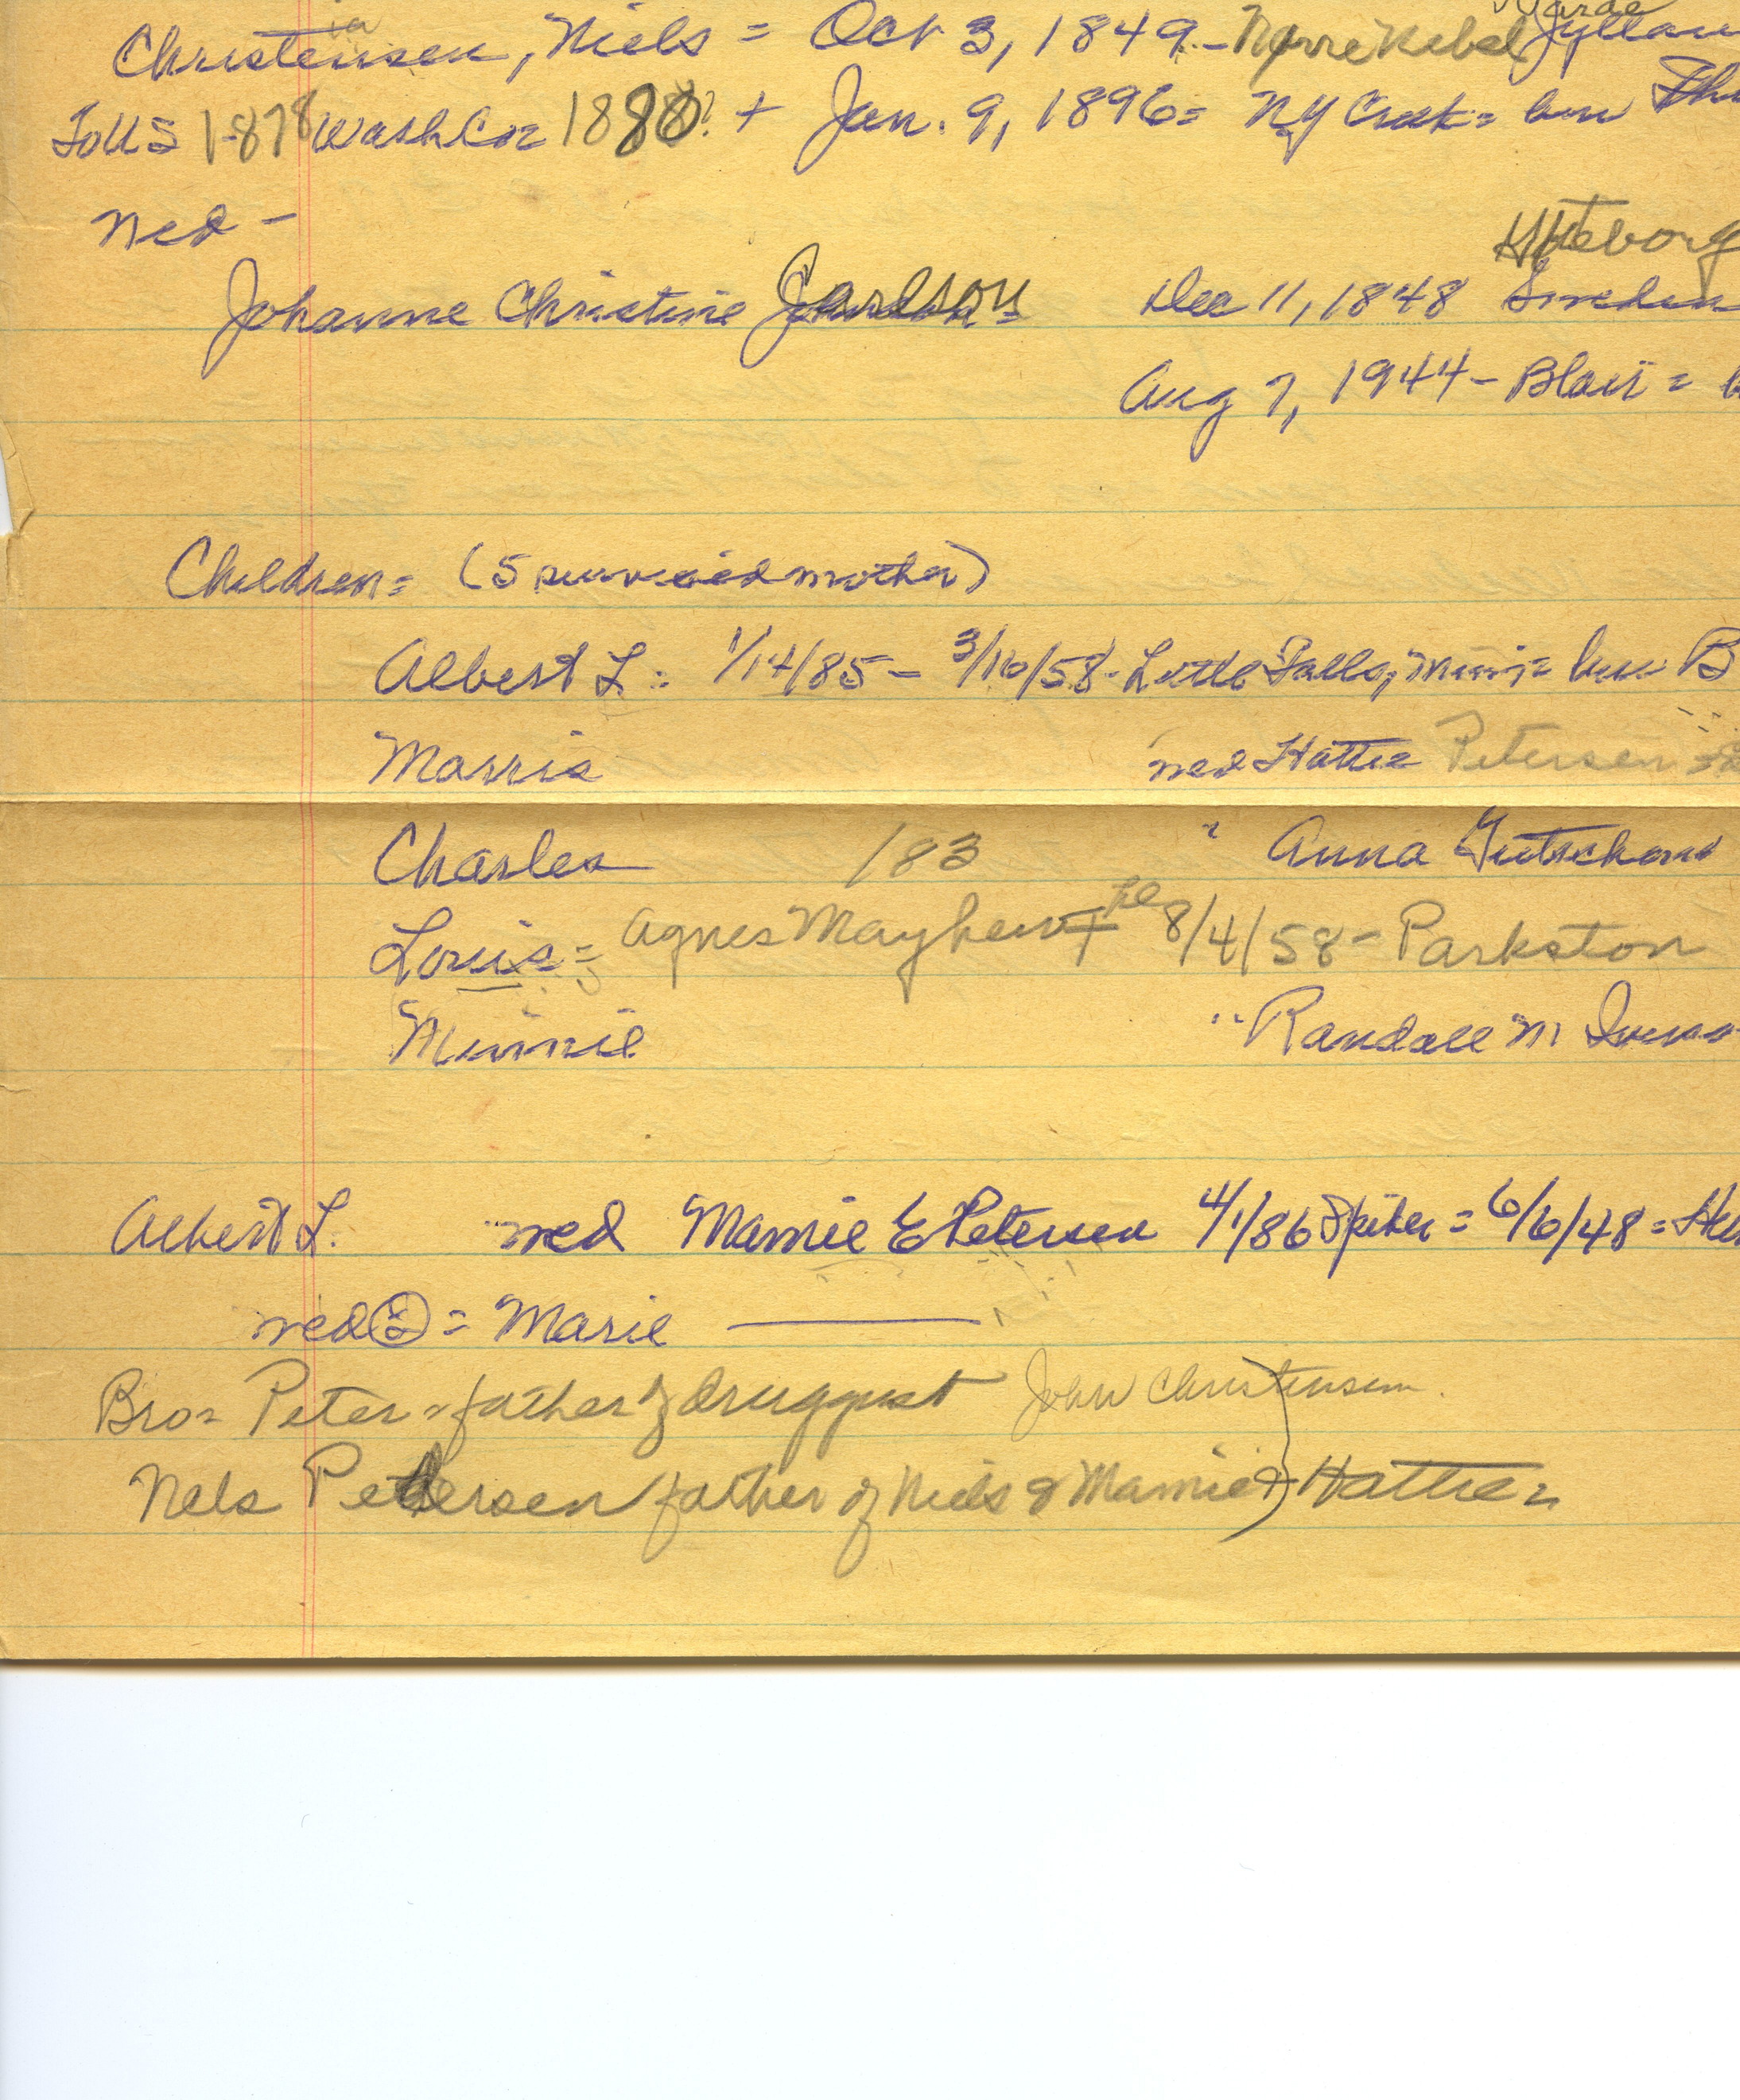 Varde
Christensen, Niels = Oct 3, 1849 - Nørre Nebel Jyllan
To US 1878 Wash Co = 1880? + Jan. 9, 1896 = NY Creek = bur
med -
Göteborg
Johanne Christine Carlson = Dec 11, 1848 Sweden
Aug 7, 1944 - Blair =
Children = (5 survived mother)
Albert L. : 1/14/85 - 3/16/58 - Little Falls, Minn = bur B
Morris med Hattie Petersen
Charles 183 " Anna Gutschow
Louis = Agnes Mayhew + he 8/4/58 - Parkston
Minnie " Randall M
Albert L. med Mamie E Petersen 4/1/86 Spiker = 6/6/48 =
med ② = Marie ———
Bro = Peter = father of druggist John Christensen.
Nels Petersen father of Niels & Mamie & Hattie =